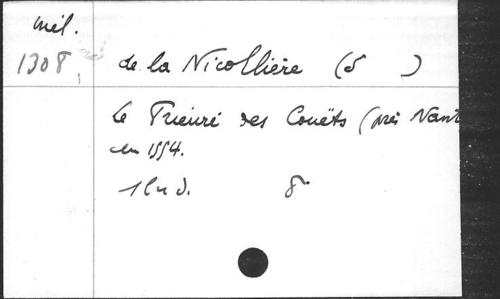 mél.
1308,
de la Nicollière (S )
Le Prieuré des Couëts (près Nant
en 1554.
8°